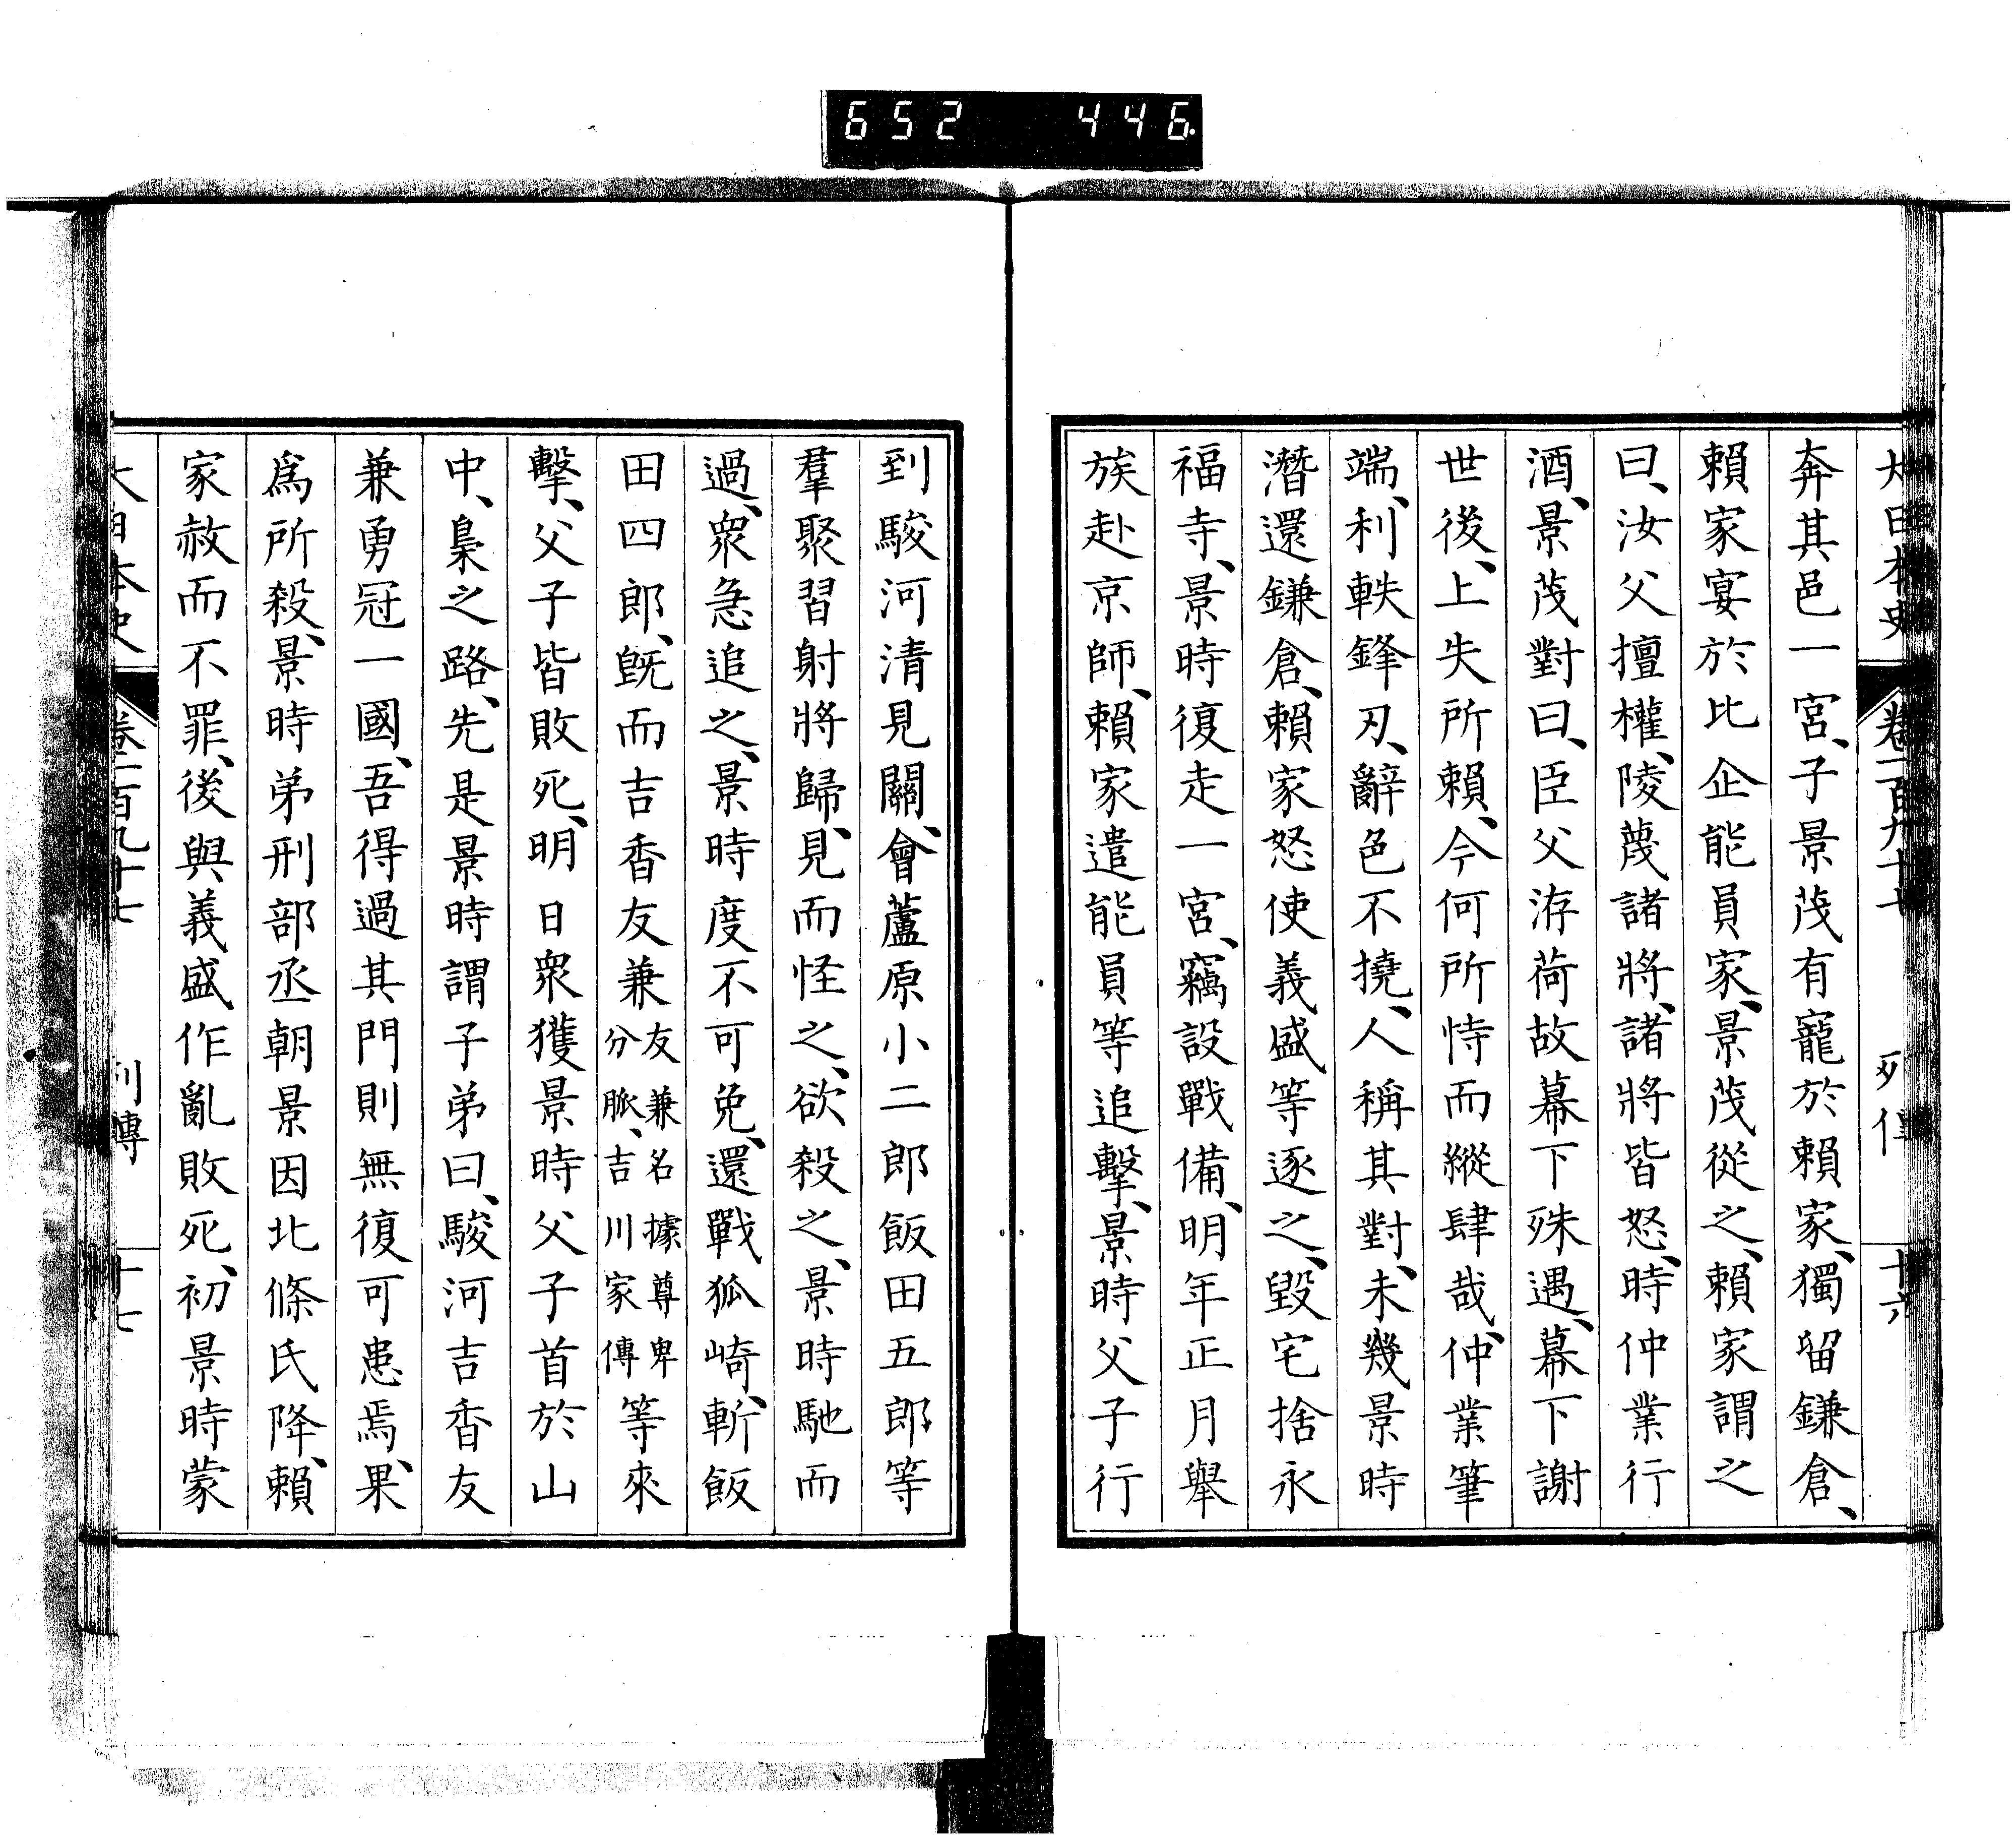 652 446
大日本史 卷一百九十七 列傳 十六
奔其邑一宮、子景茂有寵於賴家、獨留鎌倉、
賴家宴於比企能員家、景茂從之、賴家謂之
曰、汝父擅權、陵蔑諸將、諸將皆怒、時仲業行
酒、景茂對曰、臣父洊荷故幕下殊遇、幕下謝
世後、上失所賴、今何所恃而縱肆哉、仲業筆
端、利軼鋒刃、辭色不撓、人稱其對、未幾景時
潛還鎌倉、賴家怒使義盛等逐之、毀宅捨永
福寺、景時復走一宮、竊設戰備、明年正月舉
族赴京師、賴家遣能員等追擊、景時父子行
到駿河清見關、會蘆原小二郎飯田五郎等
羣聚習射將歸、見而怪之、欲殺之、景時馳而
過、衆急追之、景時度不可免、還戰狐崎、斬飯
田四郎、既而吉香友兼友兼名據尊卑分脈、吉川家傳等來
擊、父子皆敗死、明日衆獲景時父子首於山
中、梟之路、先是景時謂子弟曰、駿河吉香友
兼勇冠一國、吾得過其門則無復可患焉、果
爲所殺、景時弟刑部丞朝景因北條氏降、賴
家赦而不罪、後與義盛作亂敗死、初景時蒙
大日本史 卷一百九十七 列傳 十七